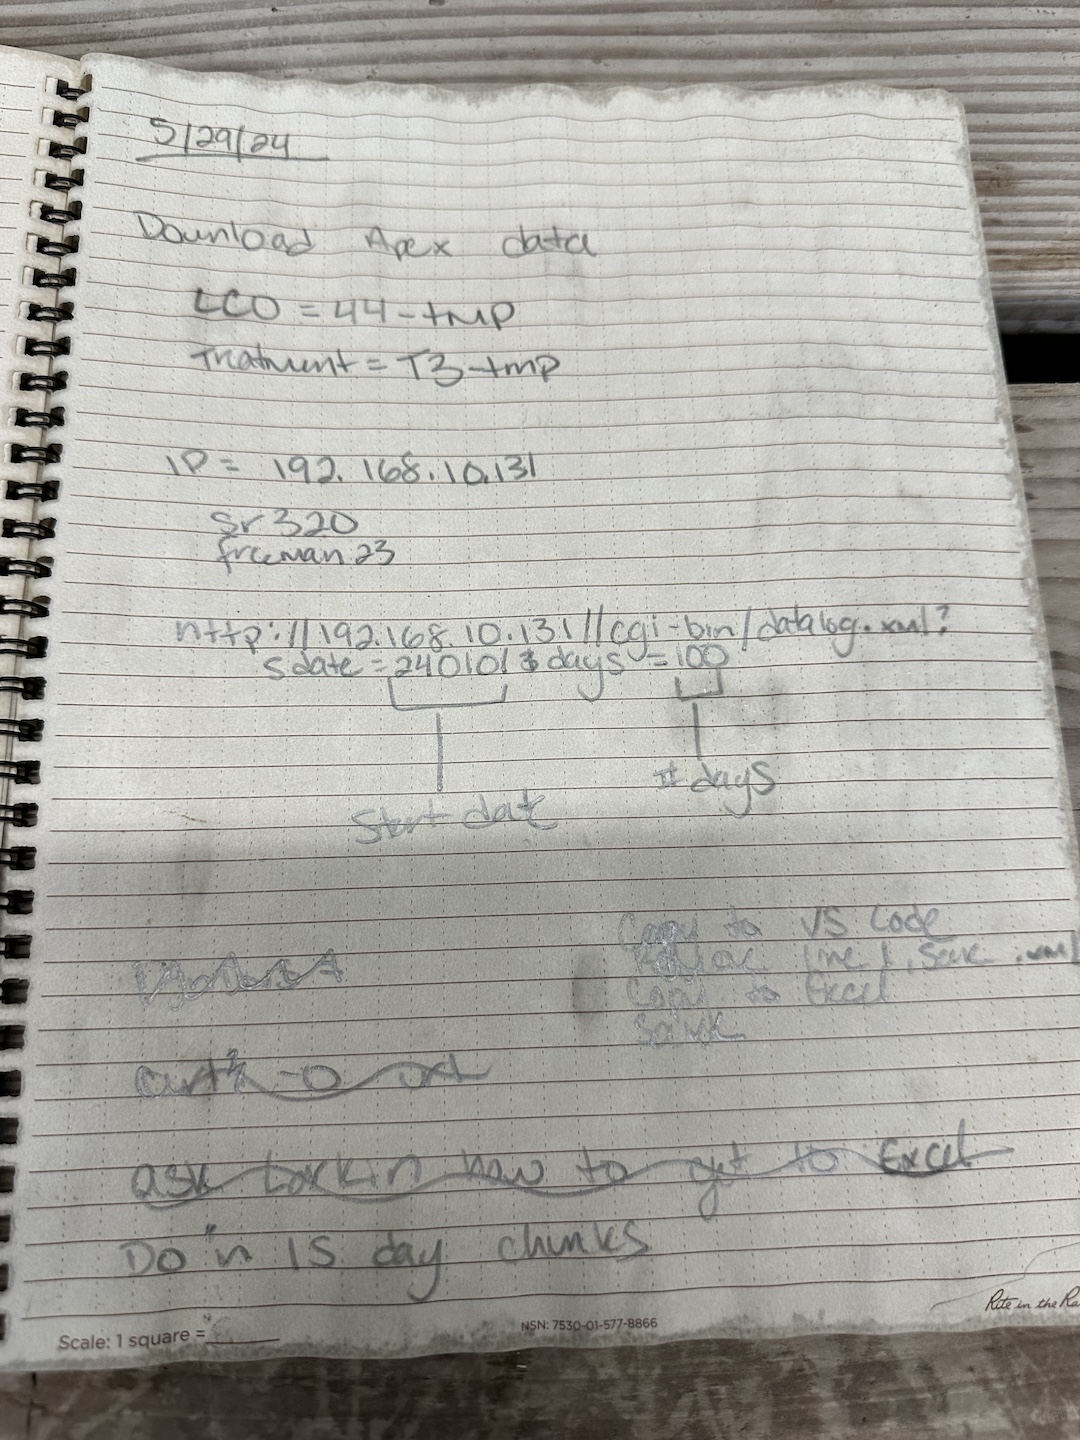 5/29/24
Download Apex data
LCO = 44-tmp
Treatment = T3-tmp
IP = 192.168.10.131
Sr320
freeman23
http://192.168.10.131//cgi-bin/datalog.xml?
sdate=240101&days=100
# days
Start date
Copy to VS Code
line 1, Save .xml
Copy to Excel
Save
ask Lorkin how to get to Excel
Do in 15 day chunks
Rite in the Ra
NSN: 7530-01-577-8866
Scale: 1 square =